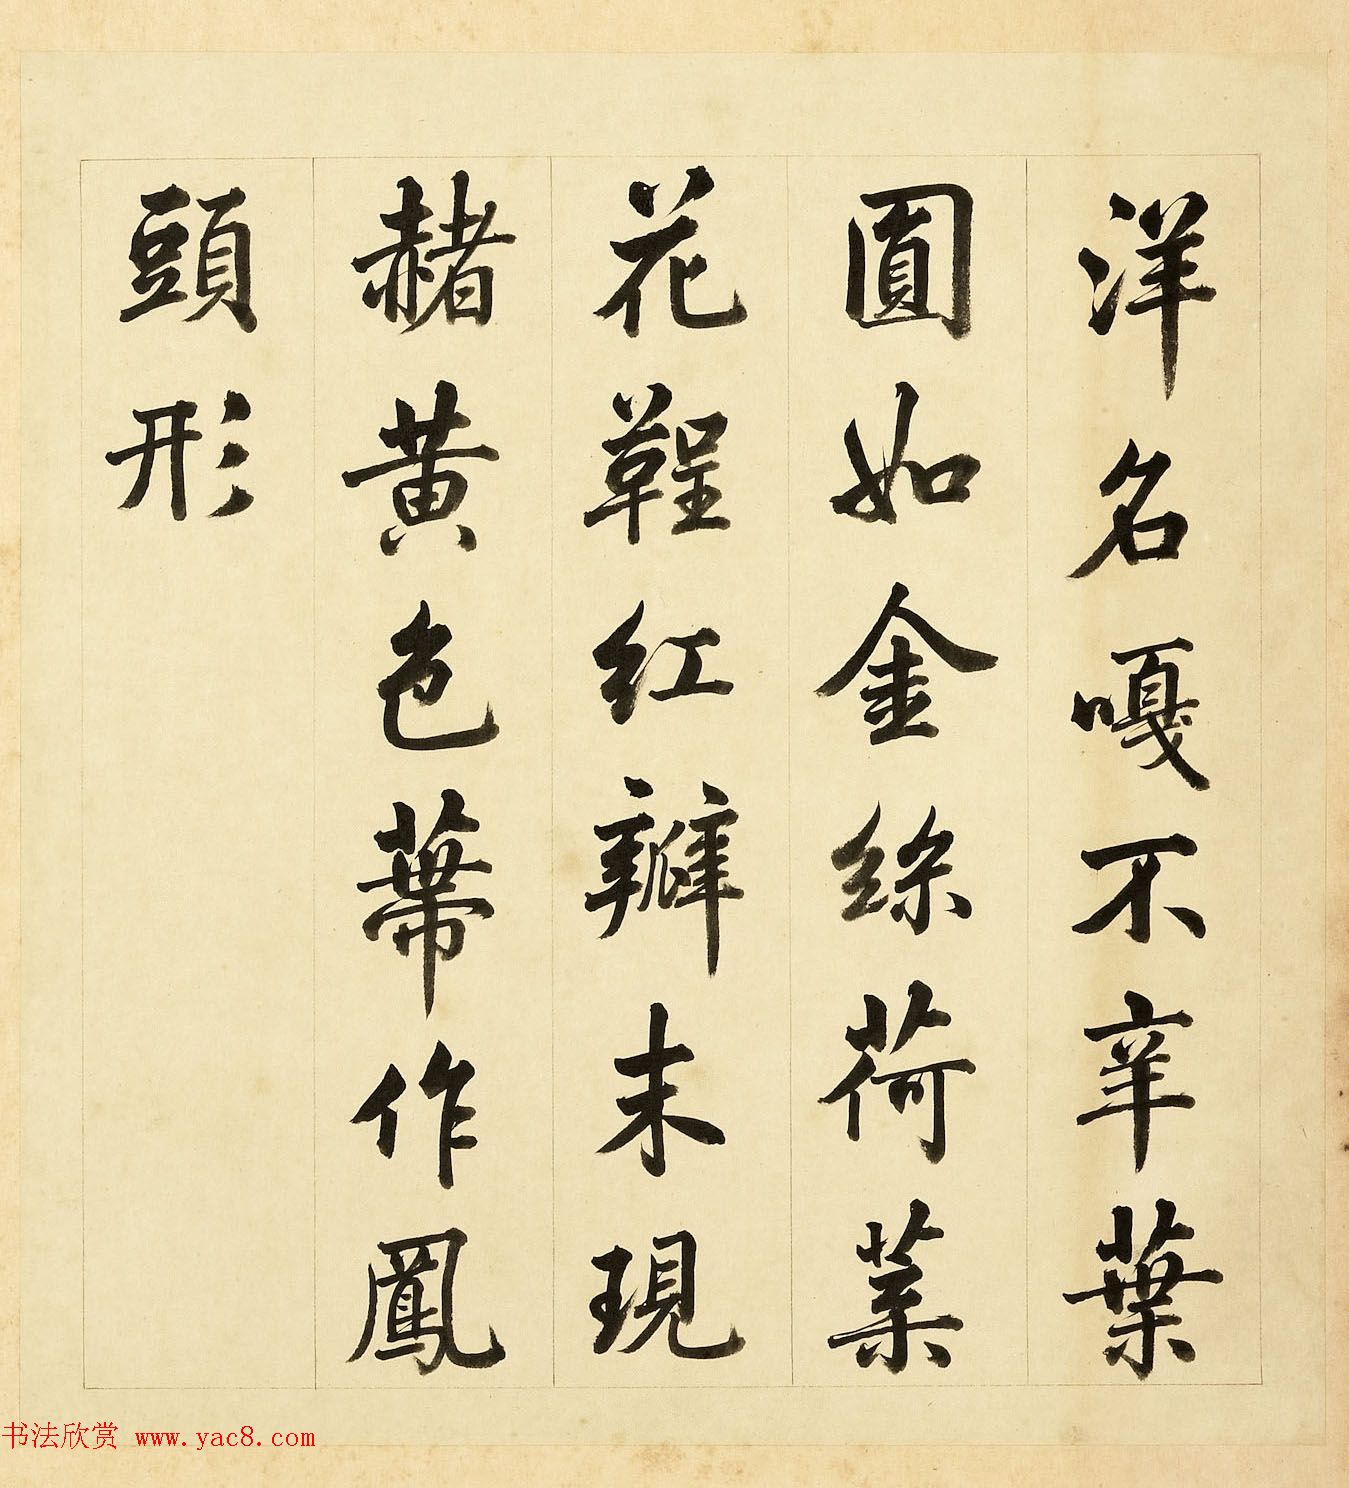 洋名嘎不辛葉
圓如金絲荷葉
花鞓紅瓣末現
赭黃色蒂作鳳
頭形
书法欣赏 www.yac8.com